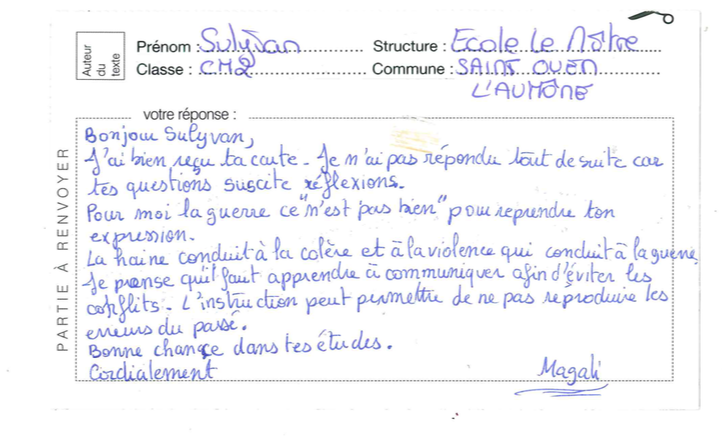 Auteur
du
texte
Prénom : Sulyvan
Structure : Ecole Le Nôtre
Classe : CM2
Commune : SAINT OUEN
L'AUMÔNE
votre réponse :
PARTIE À RENVOYER
Bonjour Sulyvan,
J'ai bien reçu ta carte. Je n'ai pas répondu tout de suite car
tes questions suscite réflexions.
Pour moi la guerre ce "n'est pas bien" pour reprendre ton
expression.
La haine conduit à la colère et à la violence qui conduit à la guerre
Je pense qu'il faut apprendre à communiquer afin d'éviter les
conflits. L'instruction peut permettre de ne pas reproduire les
erreurs du passé.
Bonne chance dans tes études.
Cordialement
Magali